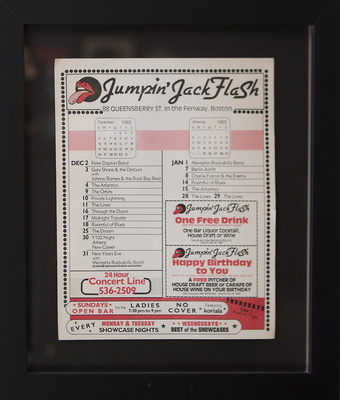 Jumpin' Jack Flash
88 QUEENSBERRY ST. In the Fenway, Boston
December 1982
January 1983
DEC 2 Peter Dayton Band
3 Gary Shane & the Detours
with
Johnny Barnes & the Back Bay Beat
4 The Atlantics
9 The Orbits
10 Private Lightning
11 The Lines
16 Through the Doors
17 Midnight Traveler
18 Roomful of Blues
23 The Dream
30 V102 Night
Athens
New Career
31 New Years Eve
with
Memphis Rockabilly Band
JAN 1 Memphis Rockabilly Band
7 Berlin Airlift
8 Charlie Farren & the Enemy
14 Roomful of Blues
15 The Atlantics
28 The Lines 29 The Lines
Jumpin' Jack Flash
One Free Drink
One Bar Liquor Cocktail,
House Draft or Wine
Jumpin' Jack Flash
Happy Birthday
to You
A FREE PITCHER OF
HOUSE DRAFT BEER or CARAFE OF
HOUSE WINE ON YOUR BIRTHDAY
24 Hour
Concert Line
536-2509
SUNDAYS
OPEN BAR
for the
LADIES
7:30 pm to 9 pm
NO
COVER
Featuring
"koriala"
THURSDAYS
EVERY
MONDAY & TUESDAY
SHOWCASE NIGHTS
WEDNESDAYS
BEST of the SHOWCASES